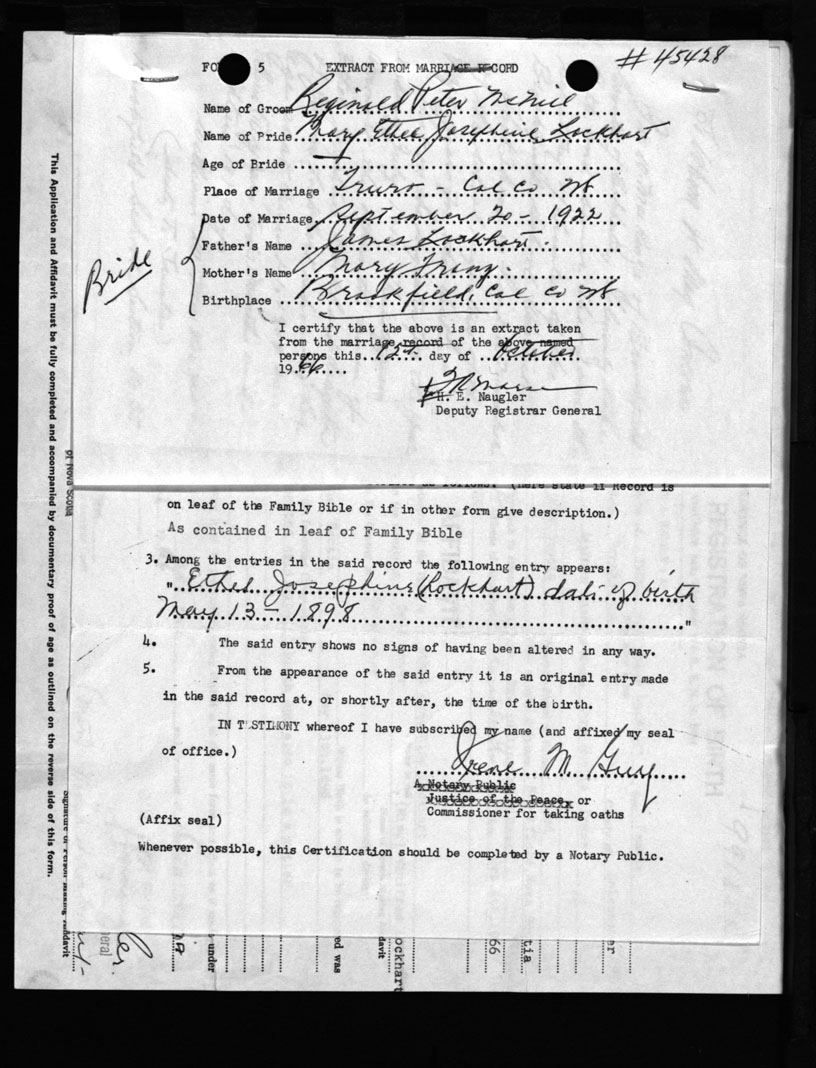 # 45428
FO 5 EXTRACT FROM MARRIAGE RECORD
Name of Groom Reginald Peter McNeil
Name of Pride Mary Ethel Josephine Lockhart
Age of Bride —
Place of Marriage Truro - Col Co NS
Date of Marriage September 20 - 1922
Bride
Father's Name James Lockhart.
Mother's Name Mary
Birthplace Brookfield, Col Co NS
I certify that the above is an extract taken
from the marriage record of the above named
persons this 12th day of October
1966
H. E. Naugler
Deputy Registrar General
(Here state if Record is
on leaf of the Family Bible or if in other form give description.)
As contained in leaf of Family Bible
3. Among the entries in the said record the following entry appears:
" Ethel Josephine (Lockhart) date of birth
May 13 - 1898 "
4. The said entry shows no signs of having been altered in any way.
5. From the appearance of the said entry it is an original entry made
in the said record at, or shortly after, the time of the birth.
IN TESTIMONY whereof I have subscribed my name (and affixed my seal
of office.)
Irene M Guy
A Notary Public
Justice of the Peace, or
Commissioner for taking oaths
(Affix seal)
Whenever possible, this Certification should be completed by a Notary Public.
This Application and Affidavit must be fully completed and accompanied by documentary proof of age as outlined on the reverse side of this form.
of Nova Scotia
Signature of Person Making Affidavit
eral
under
ed was
davit
ockhart
66
tia
er